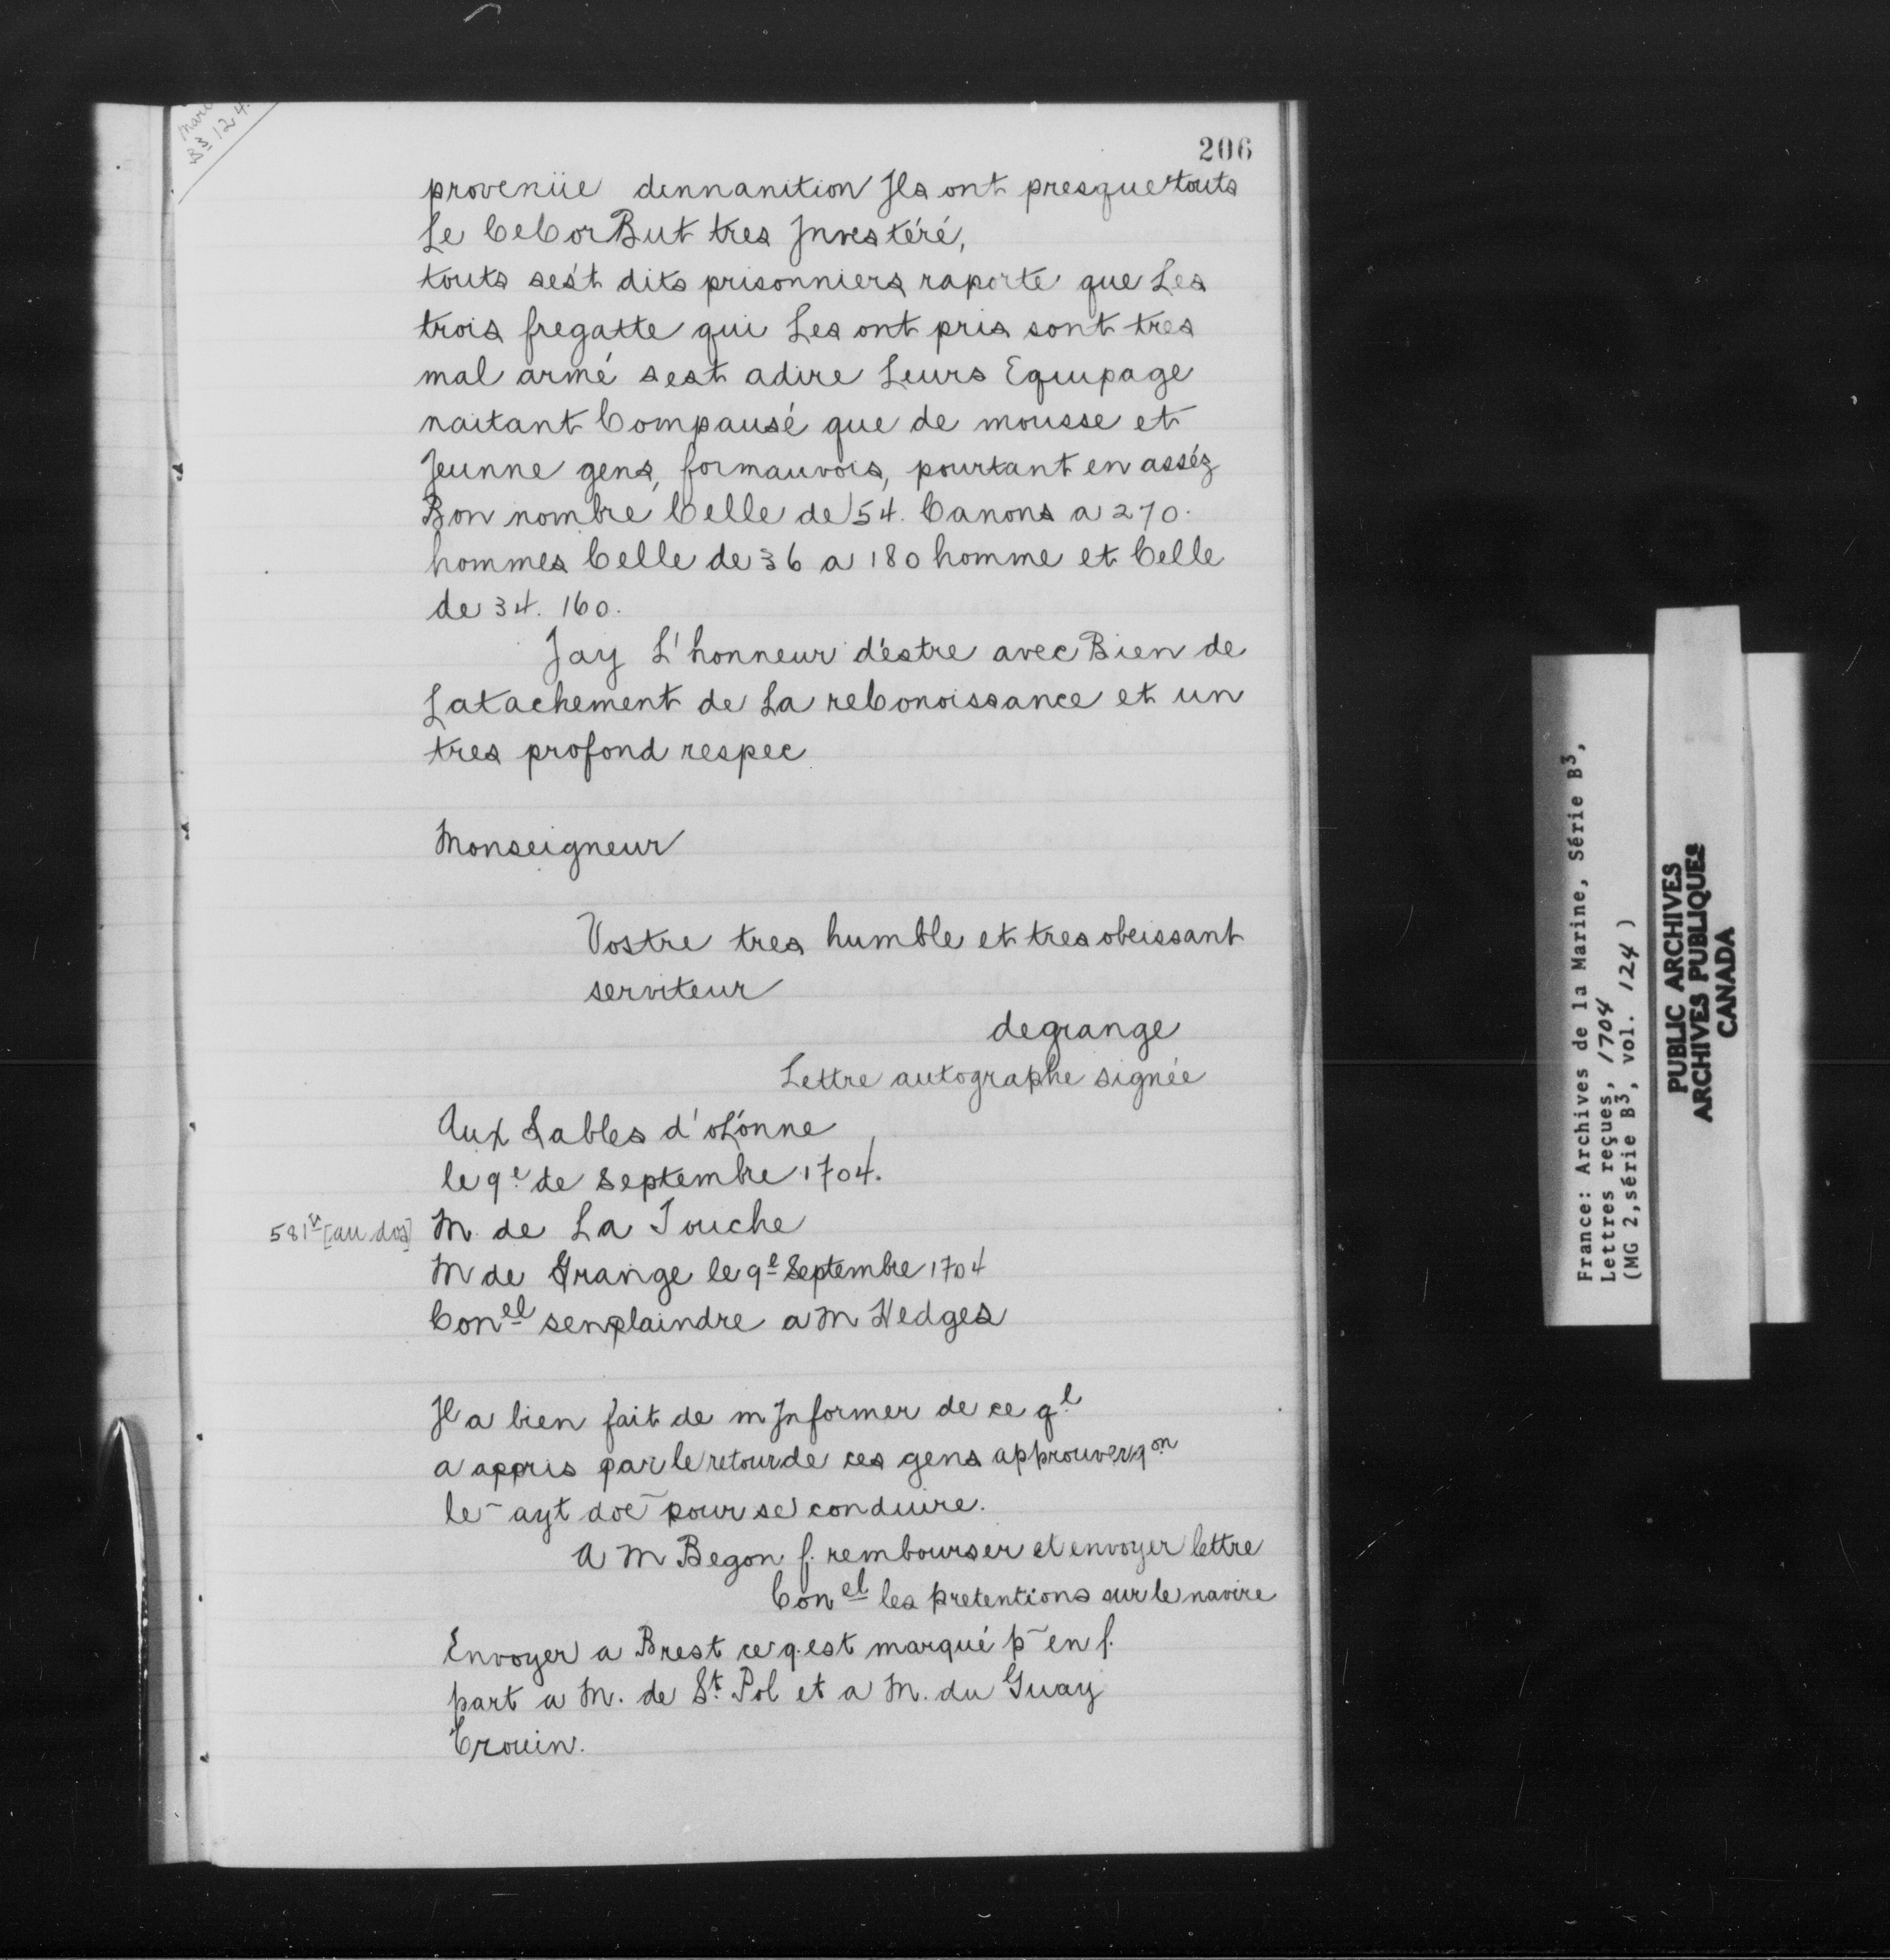 B3 124.
206
provenüe dennanition Jls ont presque touts
Le CeCorBut tres Jnvestéré,
touts ses't dits prisonniers raporte que Les
trois fregatte qui Les ont pris sont tres
mal armé sest adire Leurs Equipage
naitant Compausé que de mousse et
Jeunne gens, formauvois, pourtant en asséz
Bon nombre Celle de 54. Canons a 270.
hommes Celle de 36 a 180 homme et Celle
de 34. 160.
Jay L'honneur d'estre avec Bien de
Latachement de La reConoissance et un
tres profond respec
Monseigneur
Vostre tres humble et tres obeissant
serviteur
degrange
Lettre autographe signée
Aux Sables d'oLonne
le 9e de Septembre 1704.
581 [au dos] M de La Touche
M de Grange le 9e Septembre 1704
Conel senplaindre a M Hedges
Jl a bien fait de mJnformer de ce ql
a appris par le retour de ces gens approuver qon
le ayt doē pour se conduire.
A M Begon f. rembourser et envoyer lettre
Conel les pretentions sur le navire
Envoyer a Brest ce q. est marqué p̄ en f.
part a M. de St. Pol et a M. du Guay
Trouin.
France: Archives de la Marine, Série B3,
Lettres reçues, 1704
(MG 2, série B3, vol. 124)
PUBLIC ARCHIVES
ARCHIVES PUBLIQUES
CANADA